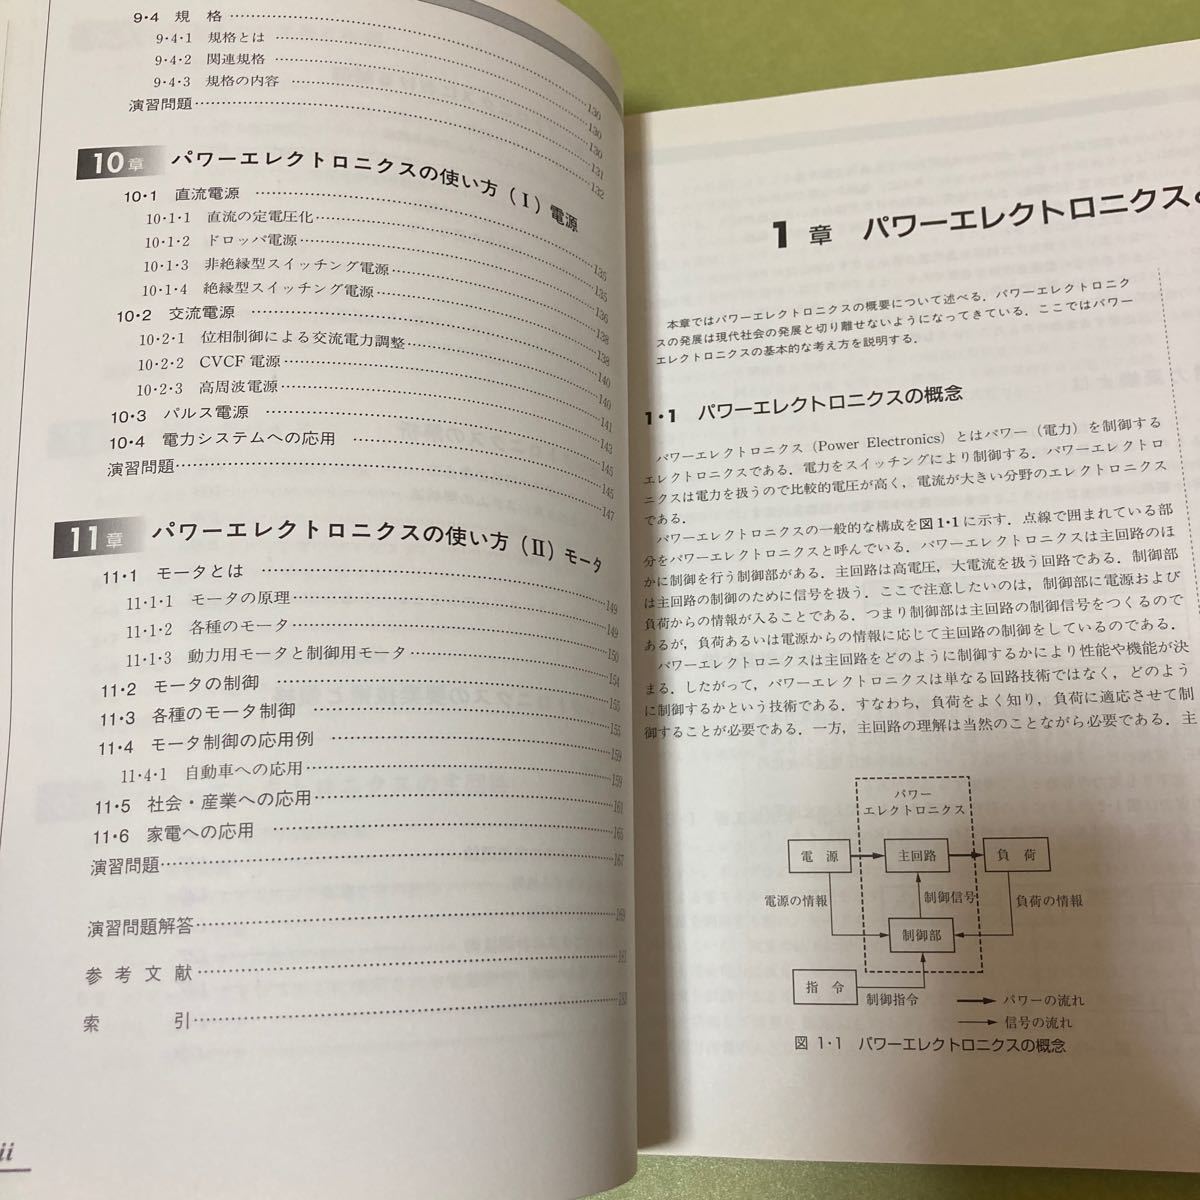 9・4 規 格
9・4・1 規格とは 130
9・4・2 関連規格 130
9・4・3 規格の内容 131
演習問題 132
10章 パワーエレクトロニクスの使い方（Ⅰ）電源
10・1 直流電源 135
10・1・1 直流の定電圧化 135
10・1・2 ドロッパ電源 136
10・1・3 非絶縁型スイッチング電源 138
10・1・4 絶縁型スイッチング電源
10・2 交流電源
10・2・1 位相制御による交流電力調整
10・2・2 CVCF 電源
10・2・3 高周波電源
10・3 パルス電源
10・4 電力システムへの応用 145
演習問題 147
11章 パワーエレクトロニクスの使い方（Ⅱ）モータ
11・1 モータとは 149
11・1・1 モータの原理 149
11・1・2 各種のモータ 150
11・1・3 動力用モータと制御用モータ 154
11・2 モータの制御 155
11・3 各種のモータ制御 155
11・4 モータ制御の応用例 159
11・4・1 自動車への応用 159
11・5 社会・産業への応用 161
11・6 家電への応用 165
演習問題 167
演習問題解答 169
参考文献 181
索 引 183
ii
1章 パワーエレクトロニクス
本章ではパワーエレクトロニクスの概要について述べる．パワーエレクトロニク
スの発展は現代社会の発展と切り離せないようになってきている．ここではパワー
エレクトロニクスの基本的な考え方を説明する．
1・1 パワーエレクトロニクスの概念
パワーエレクトロニクス（Power Electronics）とはパワー（電力）を制御する
エレクトロニクスである．電力をスイッチングにより制御する．パワーエレクトロ
ニクスは電力を扱うので比較的電圧が高く，電流が大きい分野のエレクトロニクス
である．
パワーエレクトロニクスの一般的な構成を図1・1に示す．点線で囲まれている部
分をパワーエレクトロニクスと呼んでいる．パワーエレクトロニクスは主回路のほ
かに制御を行う制御部がある．主回路は高電圧，大電流を扱う回路である．制御部
は主回路の制御のために信号を扱う．ここで注意したいのは，制御部に電源および
負荷からの情報が入ることである．つまり制御部は主回路の制御信号をつくるので
あるが，負荷あるいは電源からの情報に応じて主回路の制御をしているのである．
パワーエレクトロニクスは主回路をどのように制御するかにより性能や機能が決
まる．したがって，パワーエレクトロニクスは単なる回路技術ではなく，どのよう
に制御するかという技術である．すなわち，負荷をよく知り，負荷に適応させて制
御することが必要である．一方，主回路の理解は当然のことながら必要である．主
パワー
エレクトロニクス
電 源
主回路
負 荷
電源の情報
制御信号
負荷の情報
制御部
指 令
制御指令
パワーの流れ
信号の流れ
図 1・1 パワーエレクトロニクスの概念